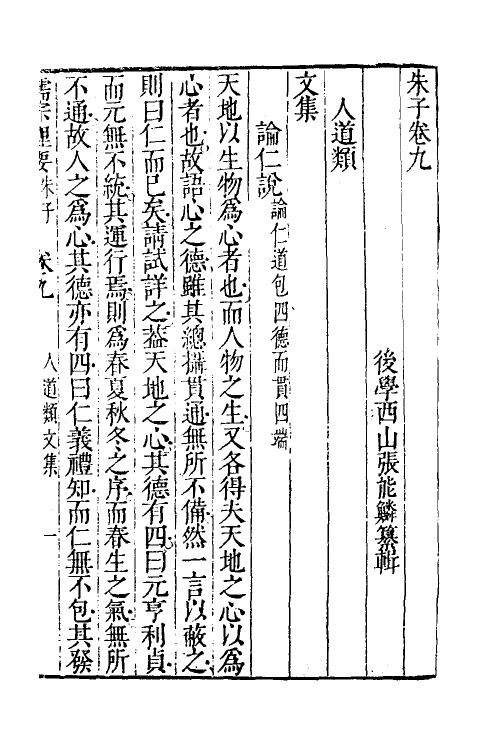 朱子卷九
後學西山張能鱗纂輯
人道類
文集
論仁說論仁道包四德而貫四端
天地以生物為心者也而人物之生又各得夫天地之心以為
心者也故語心之德雖其總攝貫通無所不備然一言以蔽之
則曰仁而已矣請試詳之葢天地之心其德有四曰元亨利貞
而元無不統其運行焉則為春夏秋冬之序而春生之氣無所
不通故人之為心其德亦有四曰仁義禮知而仁無不包其發
儒宗理要朱子 卷九 人道類文集 一